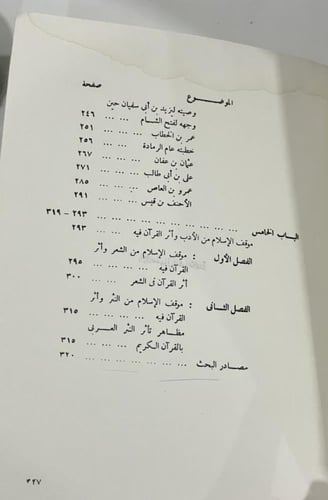 الموضوع صفحة
وصيته ليزيد بن أبى سفيان حين
وجهه لفتح الشام ... ... ٢٤٦
عمر بن الخطاب ... ... ... ٢٥١
خطبته عام الرمادة ... ... ٢٥٦
عثمان بن عفان ... ... ... ٢٦٧
على بن أبى طالب ... ... ... ٢٧١
عمرو بن العاص ... ... ... ٢٨٥
الأحنف بن قيس ... ... ... ٢٩١
الباب الخامس ... ... ... ... ... ... ... ... ٢٩٣ - ٣١٩
موقف الإسلام من الأدب وأثر القرآن فيه ... ... ٢٩٣
الفصل الأول : موقف الإسلام من الشعر وأثر
القرآن فيه ... ... ... ٢٩٥
أثر القرآن فى الشعر ... ... ٣٠٠
الفصل الثانى : موقف الإسلام من النثر وأثر
القرآن فيه ... ... ... ٣١٥
مظاهر تأثر النثر العربى
بالقرآن الكريم ... ... ... ٣١٥
مصادر البحث ... ... ... ... ... ... ... ٣٢٠
٣٢٧